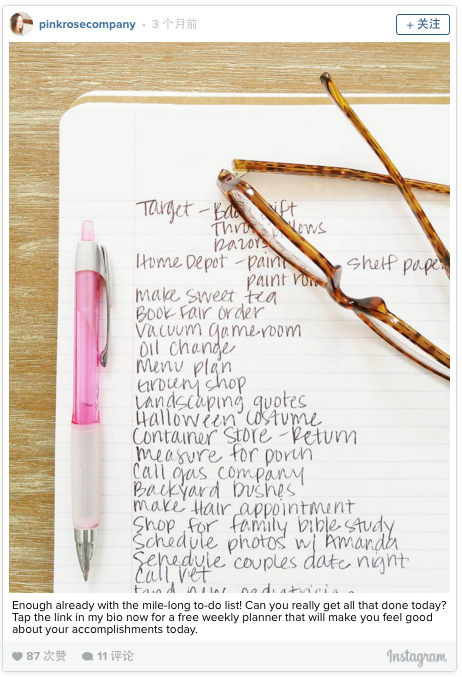 pinkrosecompany • 3 个月前
+ 关注
Target -
Throw pillows
Razors
Home Depot - paint shelf pape
paint
make sweet tea
Book Fair order
Vacuum gameroom
Oil change
Menu plan
Grocery shop
Landscaping quotes
Halloween Costume
Container Store - Return
Measure for porch
Call gas company
Backyard bushes
make Hair appointment
Shop for family bible study
Schedule photos w/ Amanda
Schedule couples date night
Call vet
find new pediatrician
Enough already with the mile-long to-do list! Can you really get all that done today?
Tap the link in my bio now for a free weekly planner that will make you feel good
about your accomplishments today.
87 次赞 11 评论
Instagram